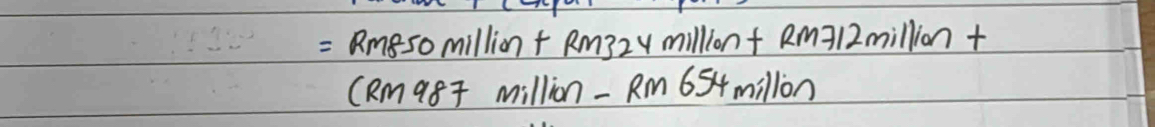 = RM850 million + RM324 million + RM712 million +
(RM987 million - RM 654 millon